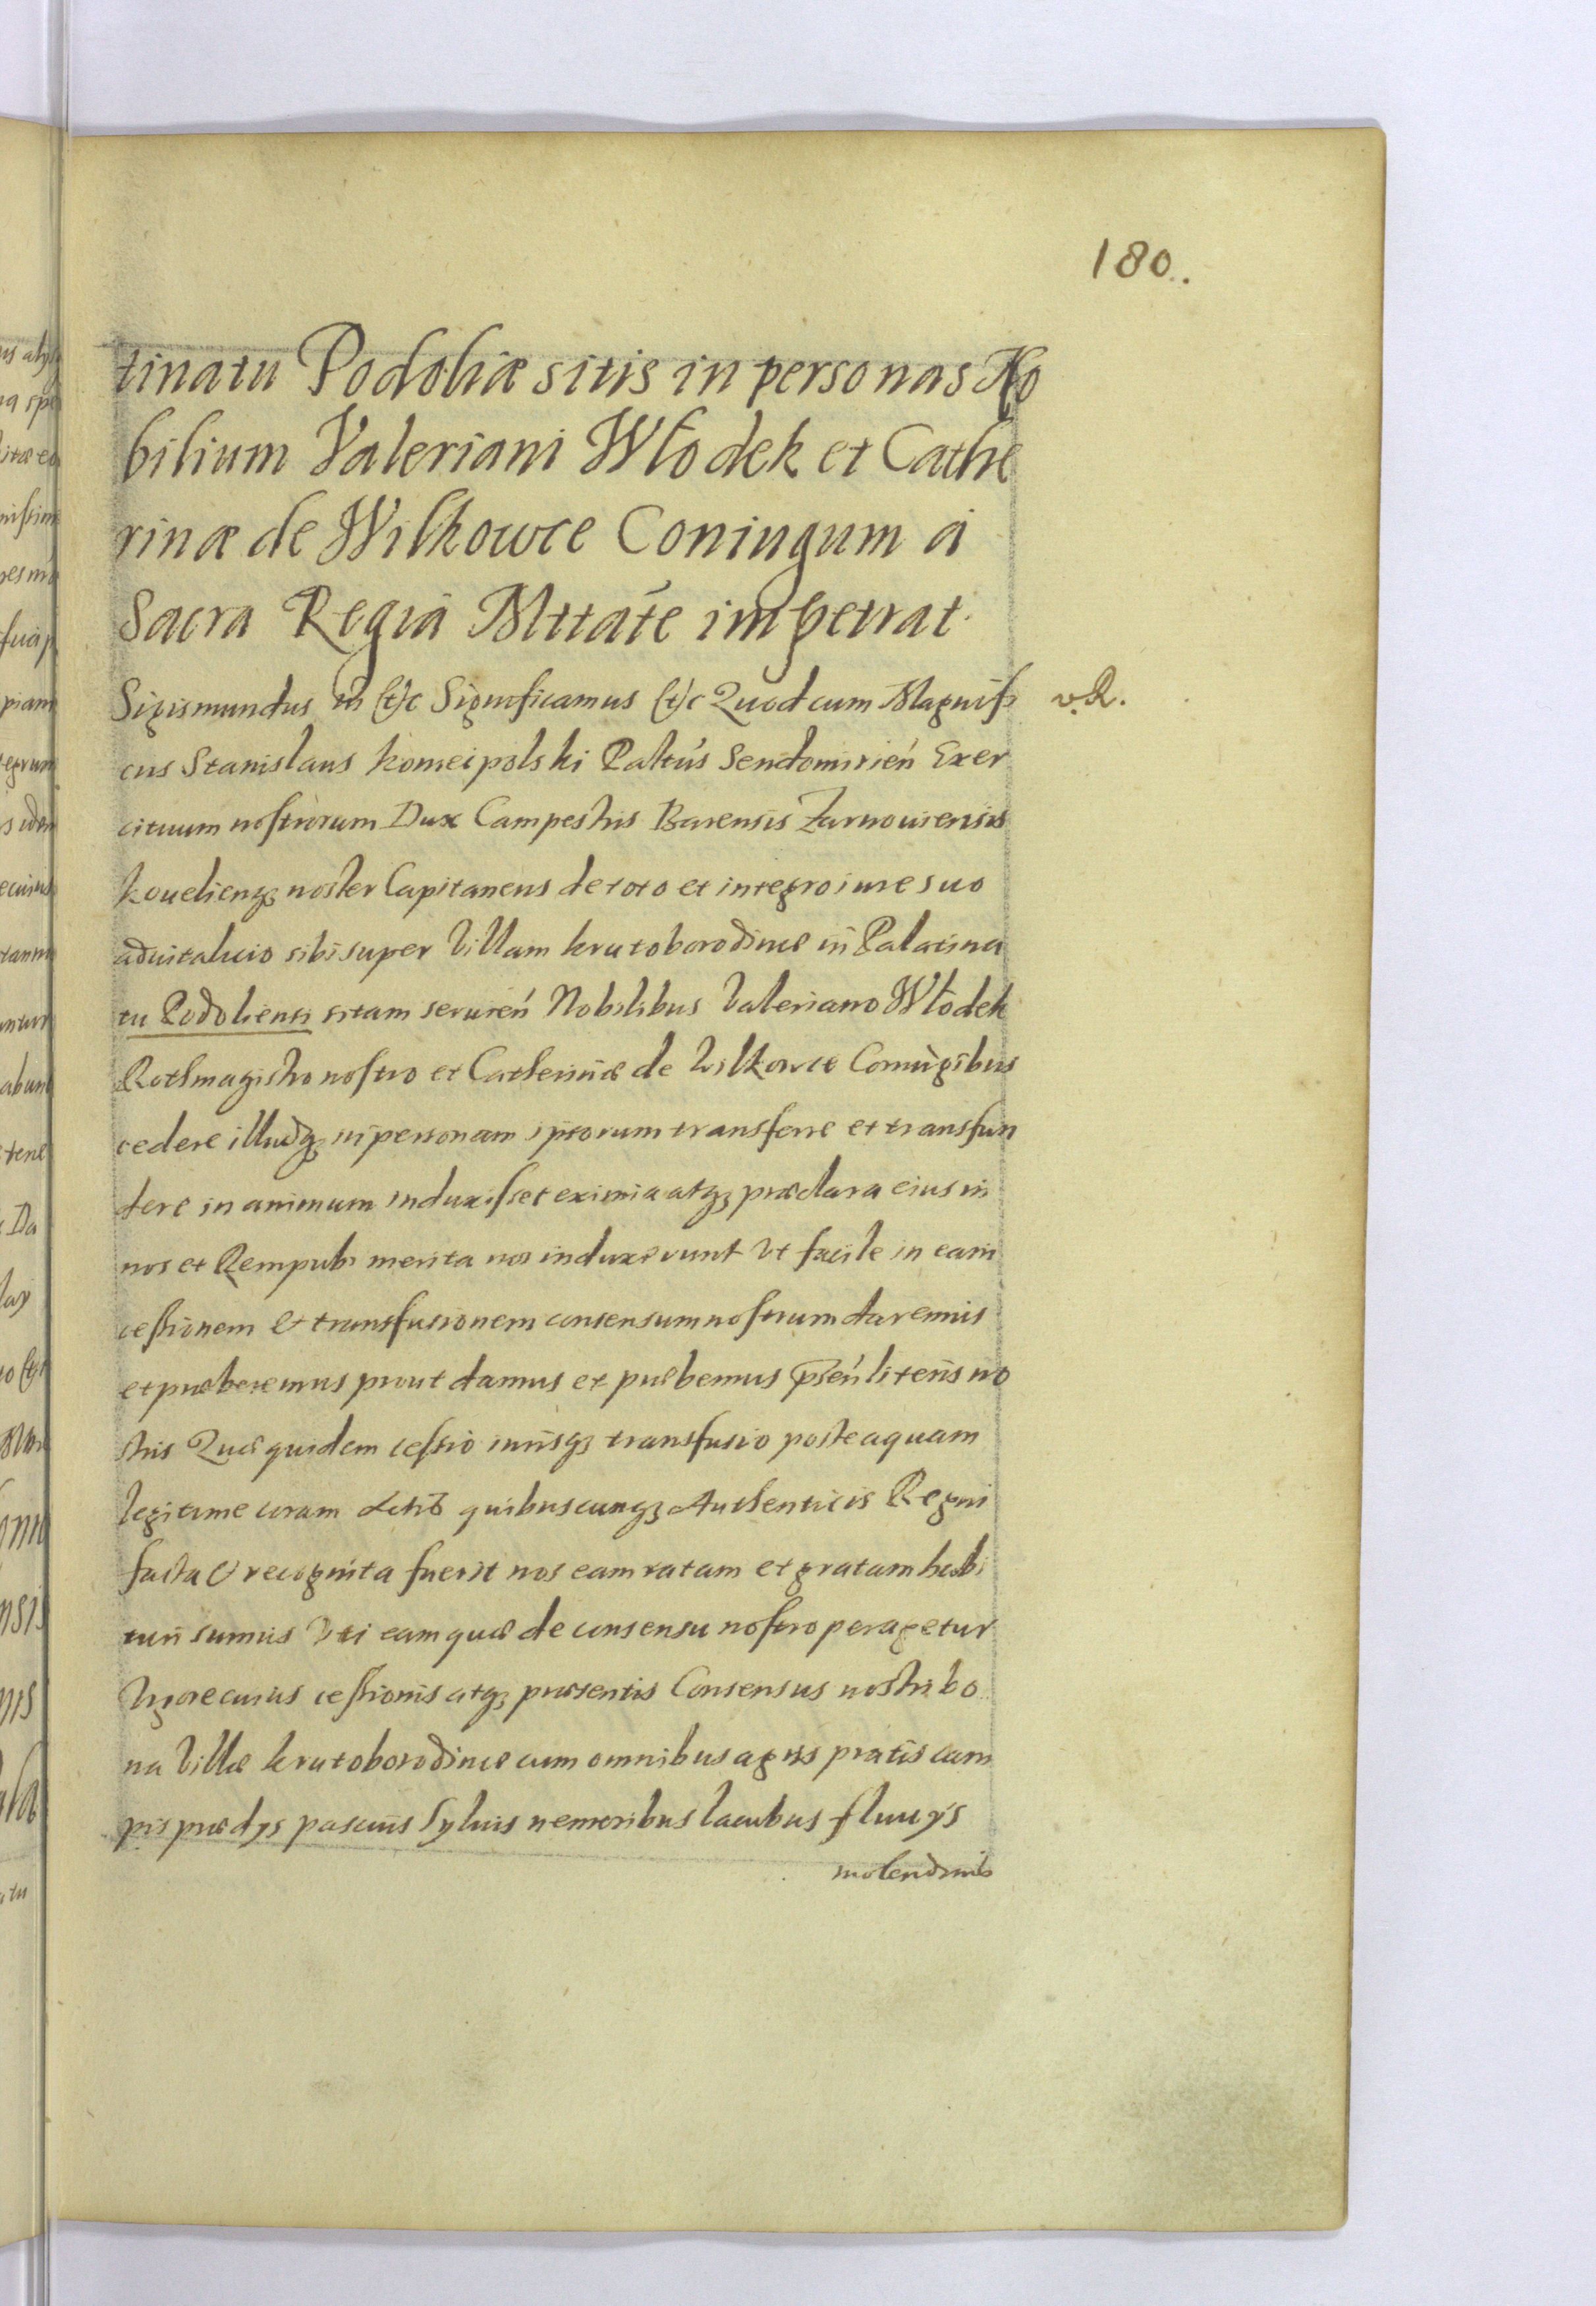 180.
tinatu Podoliæ sitis in personas No
bilium Valeriani Włodek et Cathe
rinæ de Wilkowce Coniugum á
Sacra Regiâ Mttãte impetrat.
Sigismundus III etc Significamus etc Quod cum Magnifi
v. R.
cus Stanislaus Koniecpolski Paltús Sendomirień Exer
cituum nostrorum Dux Campestris Barensis Zarnouiensis
Koueliensq; noster Capitaneus de toto et integro iure suo
aduitalicio sibi super Villam Krutoborodince in Palatina
tu Podoliensi sitam seruień Nobilibus Valeriano Włodek
Rothmagistro nostro et Catherinæ de Wilkowce Coniugibus
cedere illudq; in personam iptorum transferre et transfun
dere in animum induxisset eximia atq; præclara eius in
nos et Rempub: merita nos induxerunt Vt facile in eam
cessionem & transfusionem consensum nostrum daremus
et præberemus prout damus et præbemus pñsień literis no
stris Quæ quidem cessio iurisq; transfusio posteaquam
legitime coram Actis quibuscunq; Authenticis Regni
facta & recognita fuerit nos eam ratam et gratam habi
turi sumus Vti eam quæ de consensu nostro peragetur
Vigore cuius cessionis atq; præsentis Consensus nostri bo
na Villæ Krutoborodince cum omnibus agris pratis cam
pis prædys pascuis syluis nemoribus lacubus fluuys
molendinis